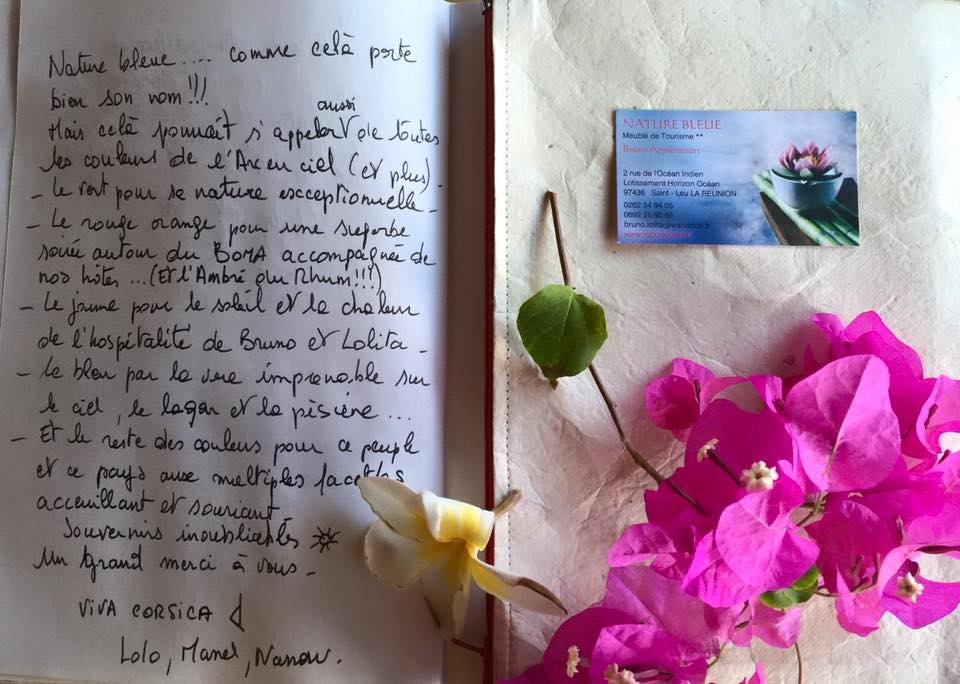 Nature bleue.... comme celà porte
bien son nom !!!
aussi
Mais celà pourrait s'appeler de toutes
les couleurs de l'Arc en ciel (et plus).
- Le vert pour se nature exceptionnelle -
- Le rouge orange pour une superbe
soirée autour du BOMA accompagnée de
nos hôtes ... (Et l'Ambré du Rhum !!!)
- Le jaune pour le soleil et la chaleur
de l'hospitalité de Bruno et Lolita -
- Le bleu par la vue imprenable sur
le ciel, le lagon et la piscine ...
- Et le reste des couleurs pour ce peuple
et ce pays aux multiples facettes
acceuillant et souriant
Souvenirs inoubliables
Un Grand merci à vous -
VIVA CORSICA
Lolo, Manel,
NATURE BLEUE
Meublé de Tourisme **
Bruno Applencourt
2 rue de l'Océan Indien
Lotissement Horizon Océan
97436 Saint - Leu LA REUNION
0262 34 94 05
0692 25 90 69
bruno.lolita@wanadoo.fr